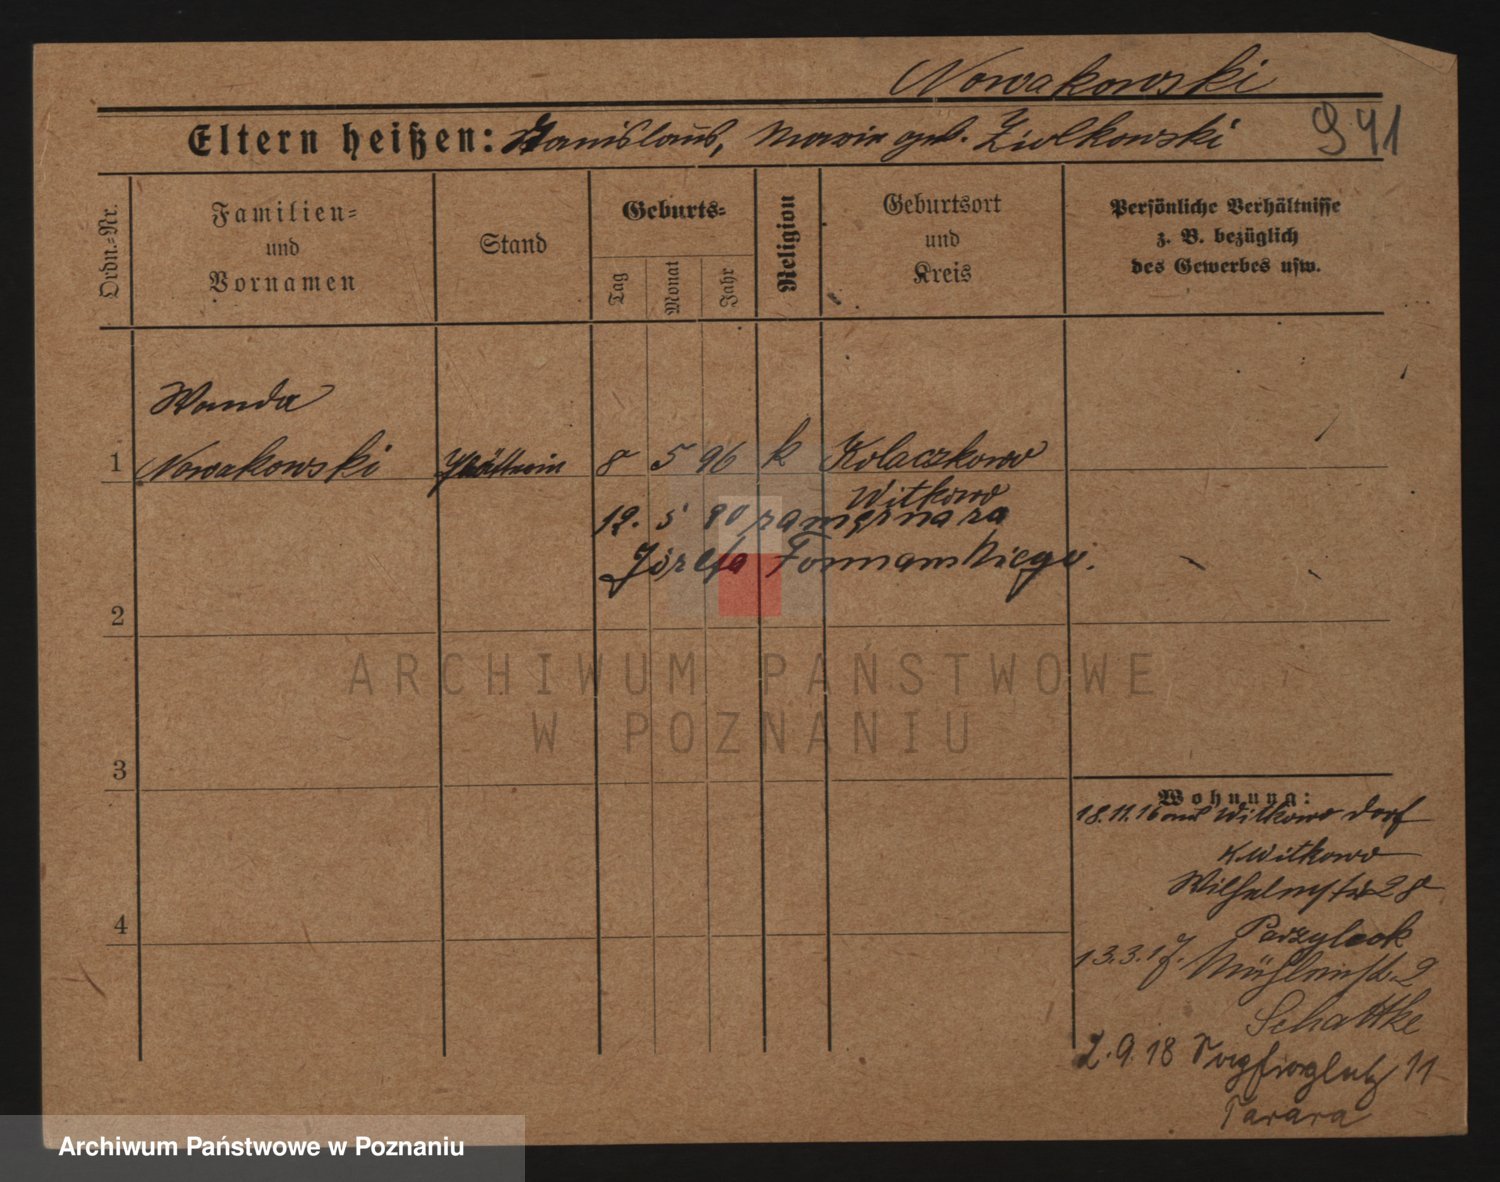 Nowakowski
Eltern heißen: Stanislaus, Maria geb. Ziolkowski
941
Ordn.=Nr.
Familien=
und
Vornamen
Stand
Geburts=
Tag
Monat
Jahr
Religion
Geburtsort
und
Kreis
Persönliche Verhältnisse
z. B. bezüglich
des Gewerbes usw.
Wanda
1 Nowakowski Plätterin 8 5 96 k Kolaczkowo
Witkowo
12. 5 20
Józefa
2
ARCHIWUM PAŃSTWOWE
W POZNANIU
3
Wohnung:
18.11.16 Witkowo Dorf
K Witkowo
Wilhelmstr 28
4
13.3.17. Mühlenstr. 2
Schattke
2.9.18 11
Tarara
Archiwum Państwowe w Poznaniu